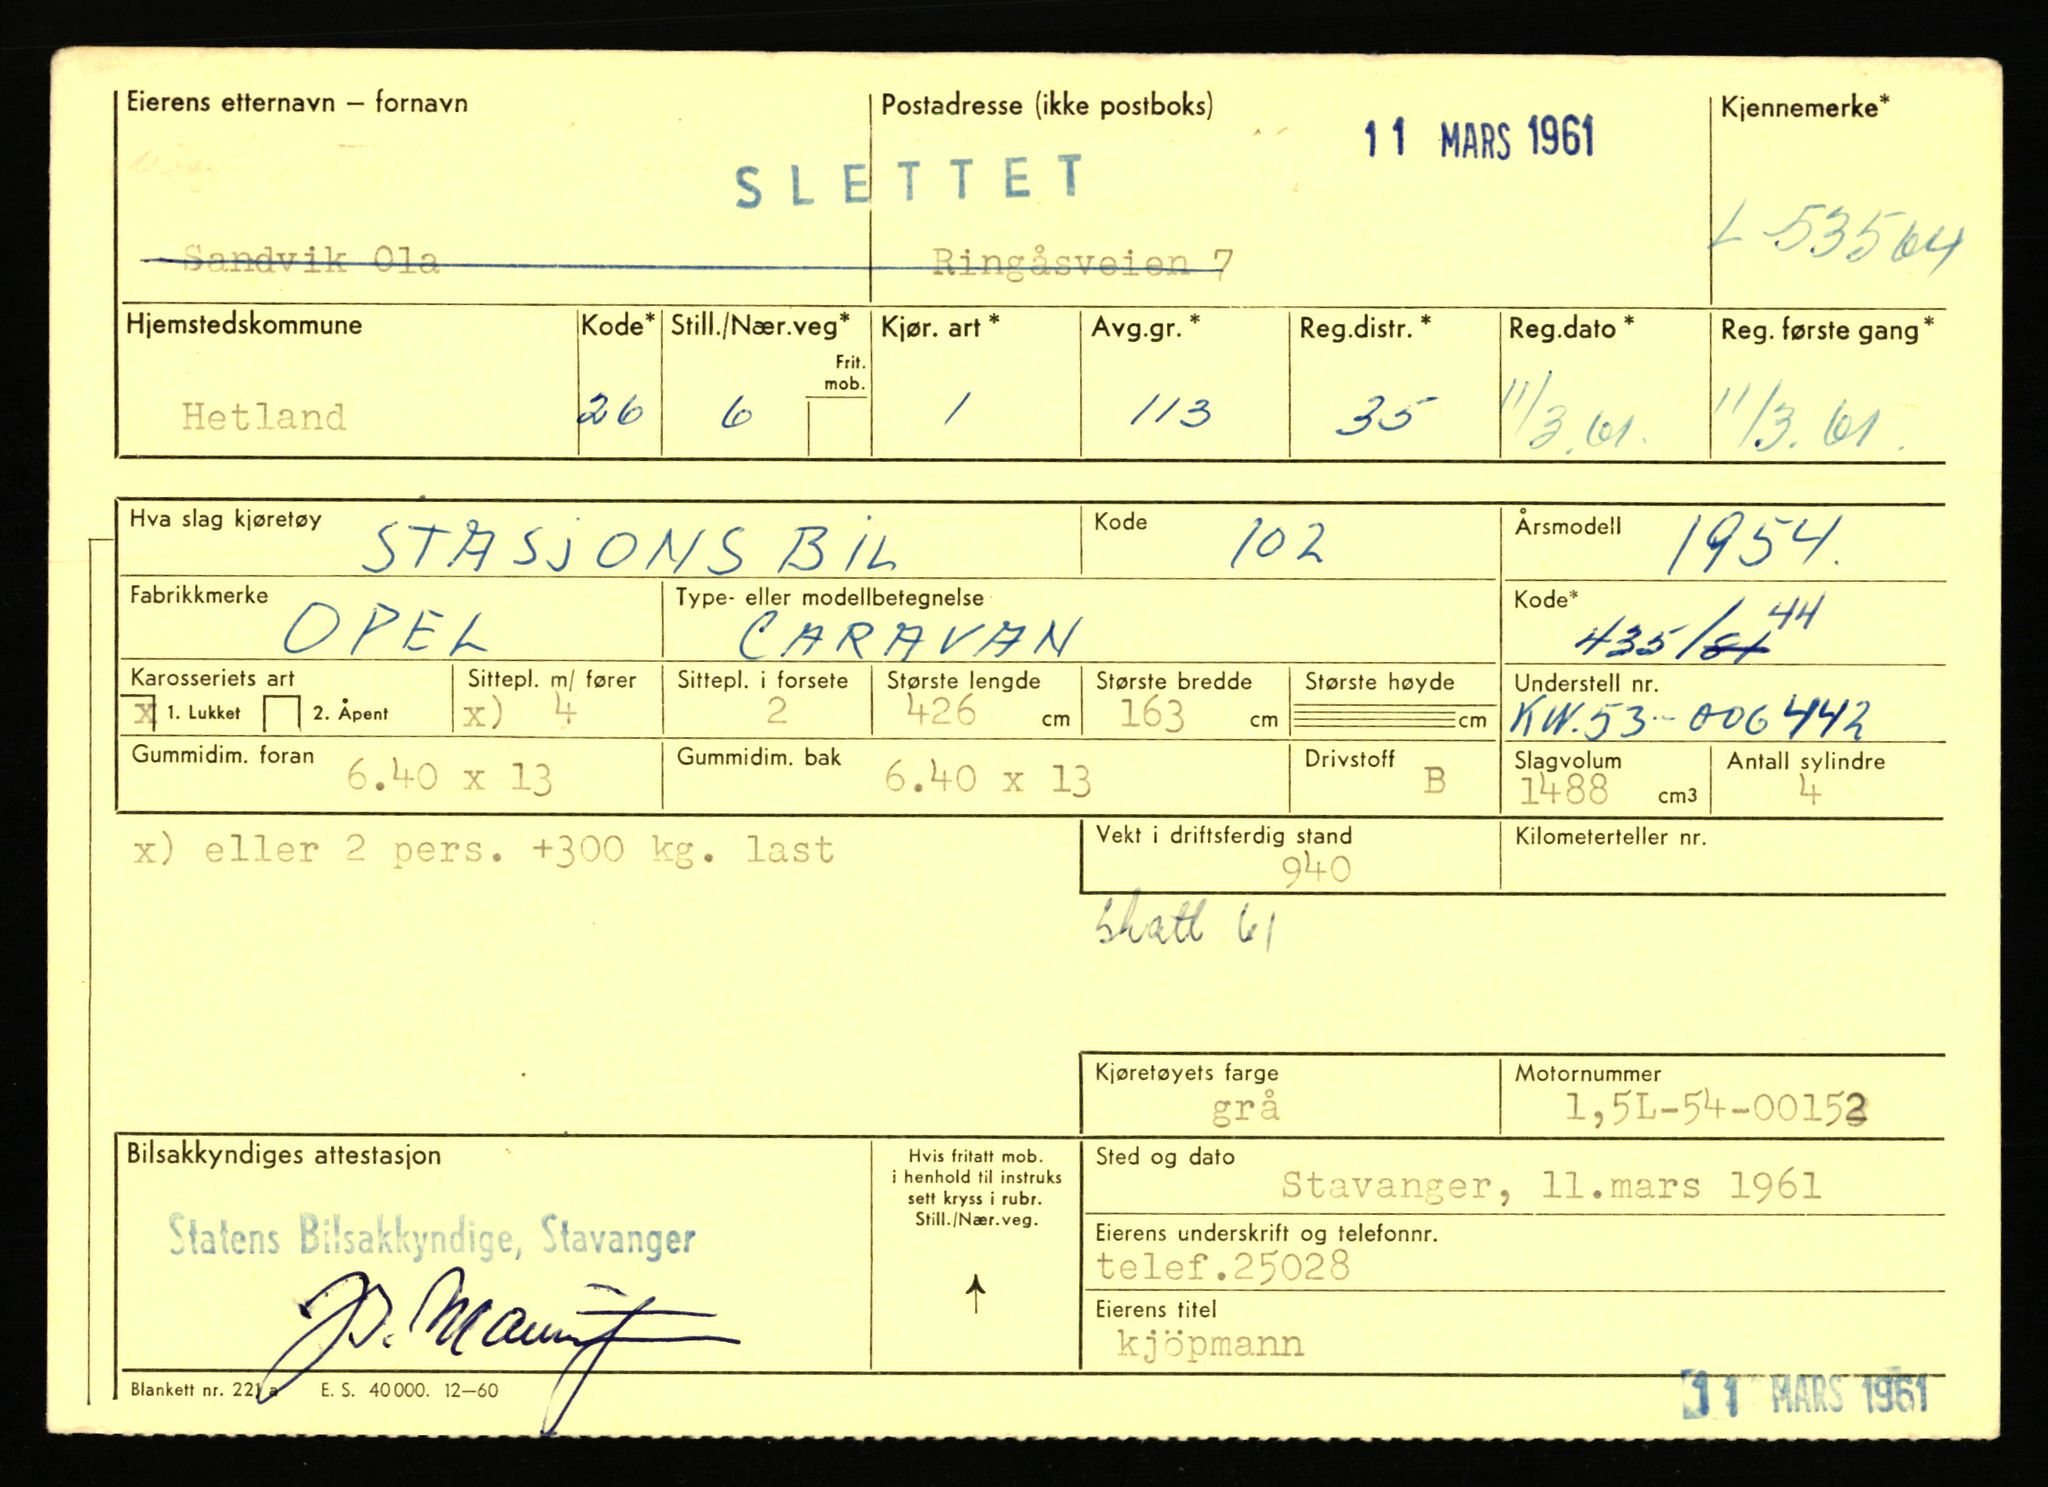 Eierens etternavn – fornavn
Postadresse (ikke postboks)
Kjennemerke*
11 MARS 1961
SLETTET
L-53564
Sandvik Ola
Ringåsveien 7
Hjemstedskommune
Kode*
Still./Nær.veg*
Kjør. art*
Avg.gr.*
Reg.distr.*
Reg.dato*
Reg. første gang*
Frit. mob.
Hetland
26
6
1
113
35
11/3.61.
11/3.61.
Hva slag kjøretøy
STASJONSBIL
Kode
102
Årsmodell
1954.
Fabrikkmerke
OPEL
Type- eller modellbetegnelse
CARAVAN
Kode*
435/61 44
Karosseriets art
x 1. Lukket 2. Åpent
Sittepl. m/ fører
x) 4
Sittepl. i forsete
2
Største lengde
426 cm
Største bredde
163 cm
Største høyde
cm
Understell nr.
KW.53-006442
Gummidim. foran
6.40 x 13
Gummidim. bak
6.40 x 13
Drivstoff
B
Slagvolum
1488 cm3
Antall sylindre
4
x) eller 2 pers. +300 kg. last
Vekt i driftsferdig stand
940
Kilometerteller nr.
skatt 61
Kjøretøyets farge
grå
Motornummer
1,5L-54-00152
Bilsakkyndiges attestasjon
Statens Bilsakkyndige, Stavanger
Hvis fritatt mob.
i henhold til instruks
sett kryss i rubr.
Still./Nær.veg.
Sted og dato
Stavanger, 11.mars 1961
Eierens underskrift og telefonnr.
telef.25028
Eierens titel
kjöpmann
Blankett nr. 221 a E. S. 40000. 12–60
11 MARS 1961